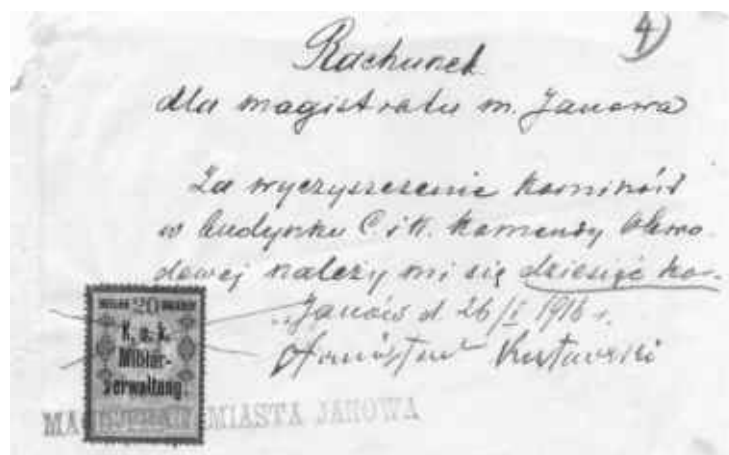 4)
Rachunek
dla magistratu m. Janowa
Za wyczyszczenie kominów
w budynku C i K. Komendy Obwo-
dowej należy mi się dziesięć kor.
Janów d. 26/I 1916 r.
Stanisław
20
K. u. k.
Militär-
verwaltung.
MAGISTRAT MIASTA JANOWA